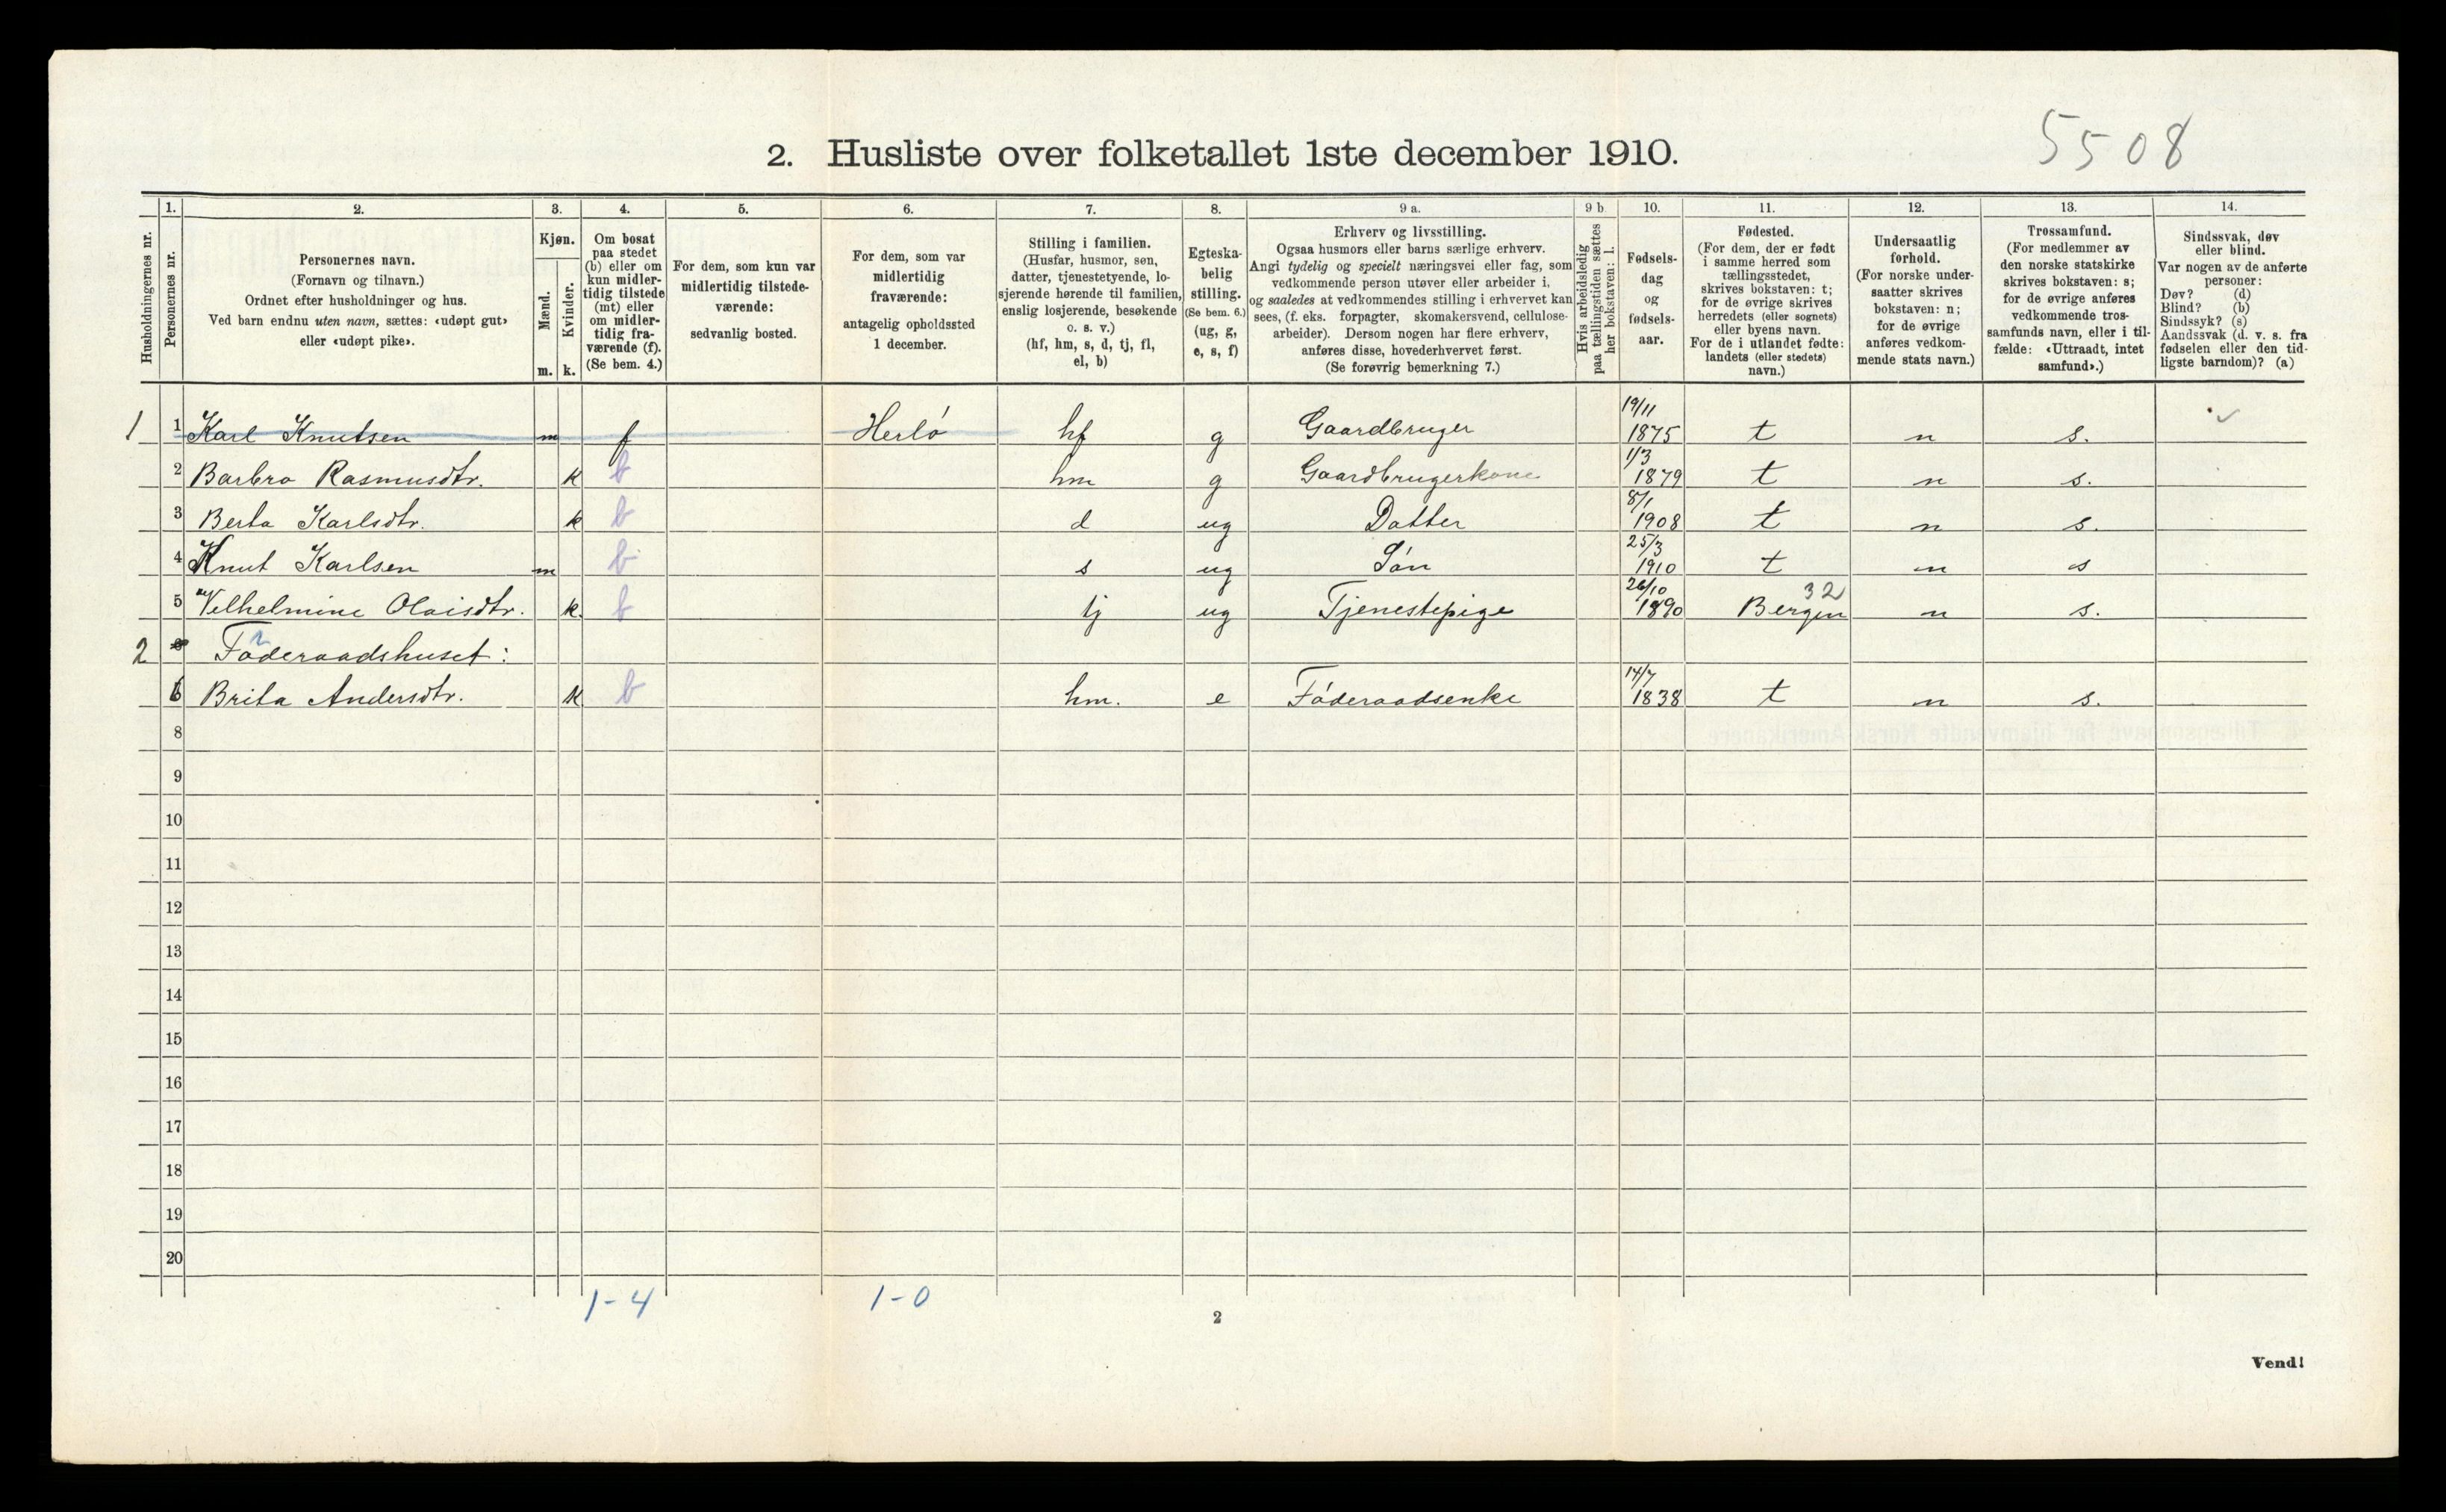 5508
2. Husliste over folketallet 1ste december 1910.
1. 2. 3. 4. 5. 6. 7. 8. 9 a. 9 b 10. 11. 12. 13. 14.
Husholdningernes nr.
Personernes nr.
Personernes navn.
(Fornavn og tilnavn.)
Ordnet efter husholdninger og hus.
Ved barn endnu uten navn, sættes: «udøpt gut»
eller «udøpt pike».
Kjøn.
Mænd.
Kvinder.
m. k.
Om bosat
paa stedet
(b) eller om
kun midler-
tidig tilstede
(mt) eller
om midler-
tidig fra-
værende (f).
(Se bem. 4.)
For dem, som kun var
midlertidig tilstede-
værende:
sedvanlig bosted.
For dem, som var
midlertidig
fraværende:
antagelig opholdssted
1 december.
Stilling i familien.
(Husfar, husmor, søn,
datter, tjenestetyende, lo-
sjerende hørende til familien,
enslig losjerende, besøkende
o. s. v.)
(hf, hm, s, d, tj, fl,
el, b)
Egteska-
belig
stilling.
(Se bem. 6.)
(ug, g,
e, s, f)
Erhverv og livsstilling.
Ogsaa husmors eller barns særlige erhverv.
Angi tydelig og specielt næringsvei eller fag, som
vedkommende person utøver eller arbeider i,
og saaledes at vedkommendes stilling i erhvervet kan
sees, (f. eks. forpagter, skomakersvend, cellulose-
arbeider). Dersom nogen har flere erhverv,
anføres disse, hovederhvervet først.
(Se forøvrig bemerkning 7.)
Hvis arbeidsledig
paa tællingstiden sættes
her bokstaven: l.
Fødsels-
dag
og
fødsels-
aar.
Fødested.
(For dem, der er født
i samme herred som
tællingsstedet,
skrives bokstaven: t;
for de øvrige skrives
herredets (eller sognets)
eller byens navn.
For de i utlandet fødte:
landets (eller stedets)
navn.)
Undersaatlig
forhold.
(For norske under-
saatter skrives
bokstaven: n;
for de øvrige
anføres vedkom-
mende stats navn.)
Trossamfund.
(For medlemmer av
den norske statskirke
skrives bokstaven: s;
for de øvrige anføres
vedkommende tros-
samfunds navn, eller i til-
fælde: «Uttraadt, intet
samfund».)
Sindssvak, døv
eller blind.
Var nogen av de anførte
personer:
Døv? (d)
Blind? (b)
Sindssyk? (s)
Aandssvak (d. v. s. fra
fødselen eller den tid-
ligste barndom)? (a)
1 1 Karl Knutsen m f Herlö hf g Gaardbruger 19/11 1875 t n s.
2 Barbro Rasmusdtr. k b hm g Gaardbrugerkone 1/3 1879 t n s.
3 Berta Karlsdtr. k b d ug Datter 8/1 1908 t n s.
4 Knut Karlsen m b s ug Sön 25/3 1910 t n s
5 Vilhelmine Olaisdtr. k. b tj ug Tjenestepige 26/10 1890 Bergen 32 n s.
2 Föderaadshuset:
6 Brita Andersdtr. k b hm. e Föderaadsenke 14/7 1838 t n s.
8
9
10
11
12
13
14
15
16
17
18
19
20
1-4 1-0
2
Vend!